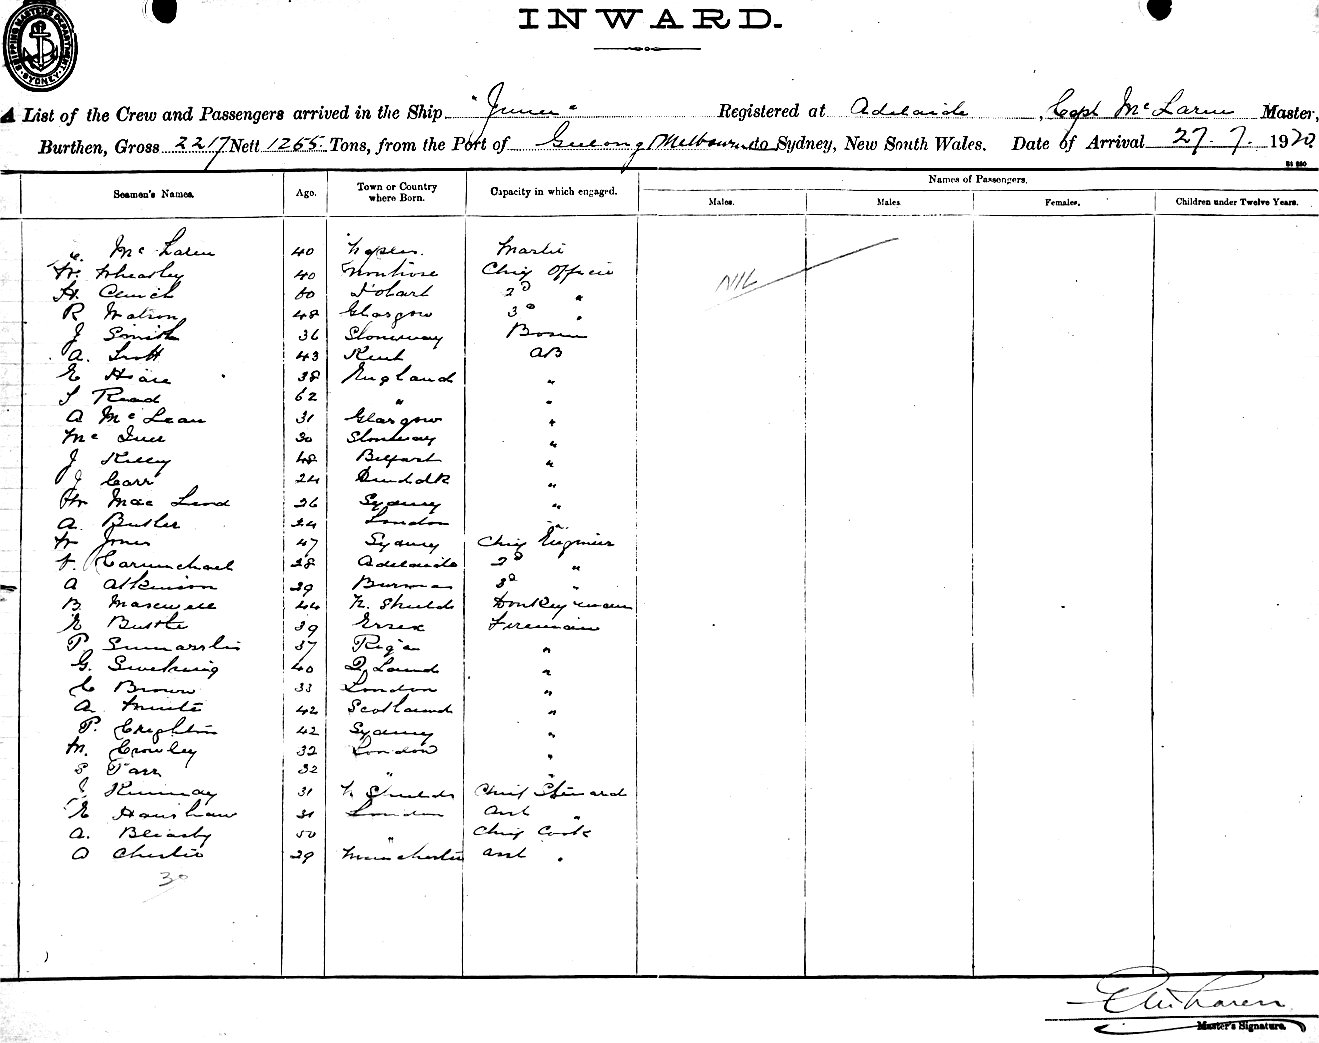 SHIPPING MASTERS DEPARTMENT SYDNEY
INWARD.
A List of the Crew and Passengers arrived in the Ship Registered at Adelaide, Capt McLaren Master,
Burthen, Gross 2217 Nett 1255 Tons, from the Port of Geelong Melbourne to Sydney, New South Wales. Date of Arrival 27. 7. 1920
Seamen's Names. Age. Town or Country where Born. Capacity in which engaged. Names of Passengers.
Males. Males. Females. Children under Twelve Years.
Mc Laren 40 Master
W. Wheatley 40 Montrose Chief Officer
H. 60 Hobart 2d "
R Watson 48 Glasgow 3d "
NIL
J Smith 36 Stornoway Bosun
A. Scott 43 Kent AB
E Hoare 38 England "
S Read 62 " "
A McLean 31 Glasgow "
Mc 30 Stornoway "
J Kelly 48 Belfast "
J Carr 24 Dundalk "
W Mac Leod 26 Sydney "
A. Butler 24 London "
W Jones 47 Sydney Chief Engineer
Carmichael 28 Adelaide 2d "
A Atkinson 29 Burma 3d "
B. Maxwell 44 N. Shields Donkeyman
E Buttle 39 Essex Fireman
P. 37 Riga "
G. 40 "
C Brown 33 London "
A 42 Scotland "
P. Creighton 42 Sydney "
M. Crowley 32 London "
S Tarr 32 " "
J 31 N. Shields Chief Steward
E Hanshaw 31 London Asst "
A. Bleasby 50 " Chief Cook
A 29 Manchester Asst "
30
Master's Signature.